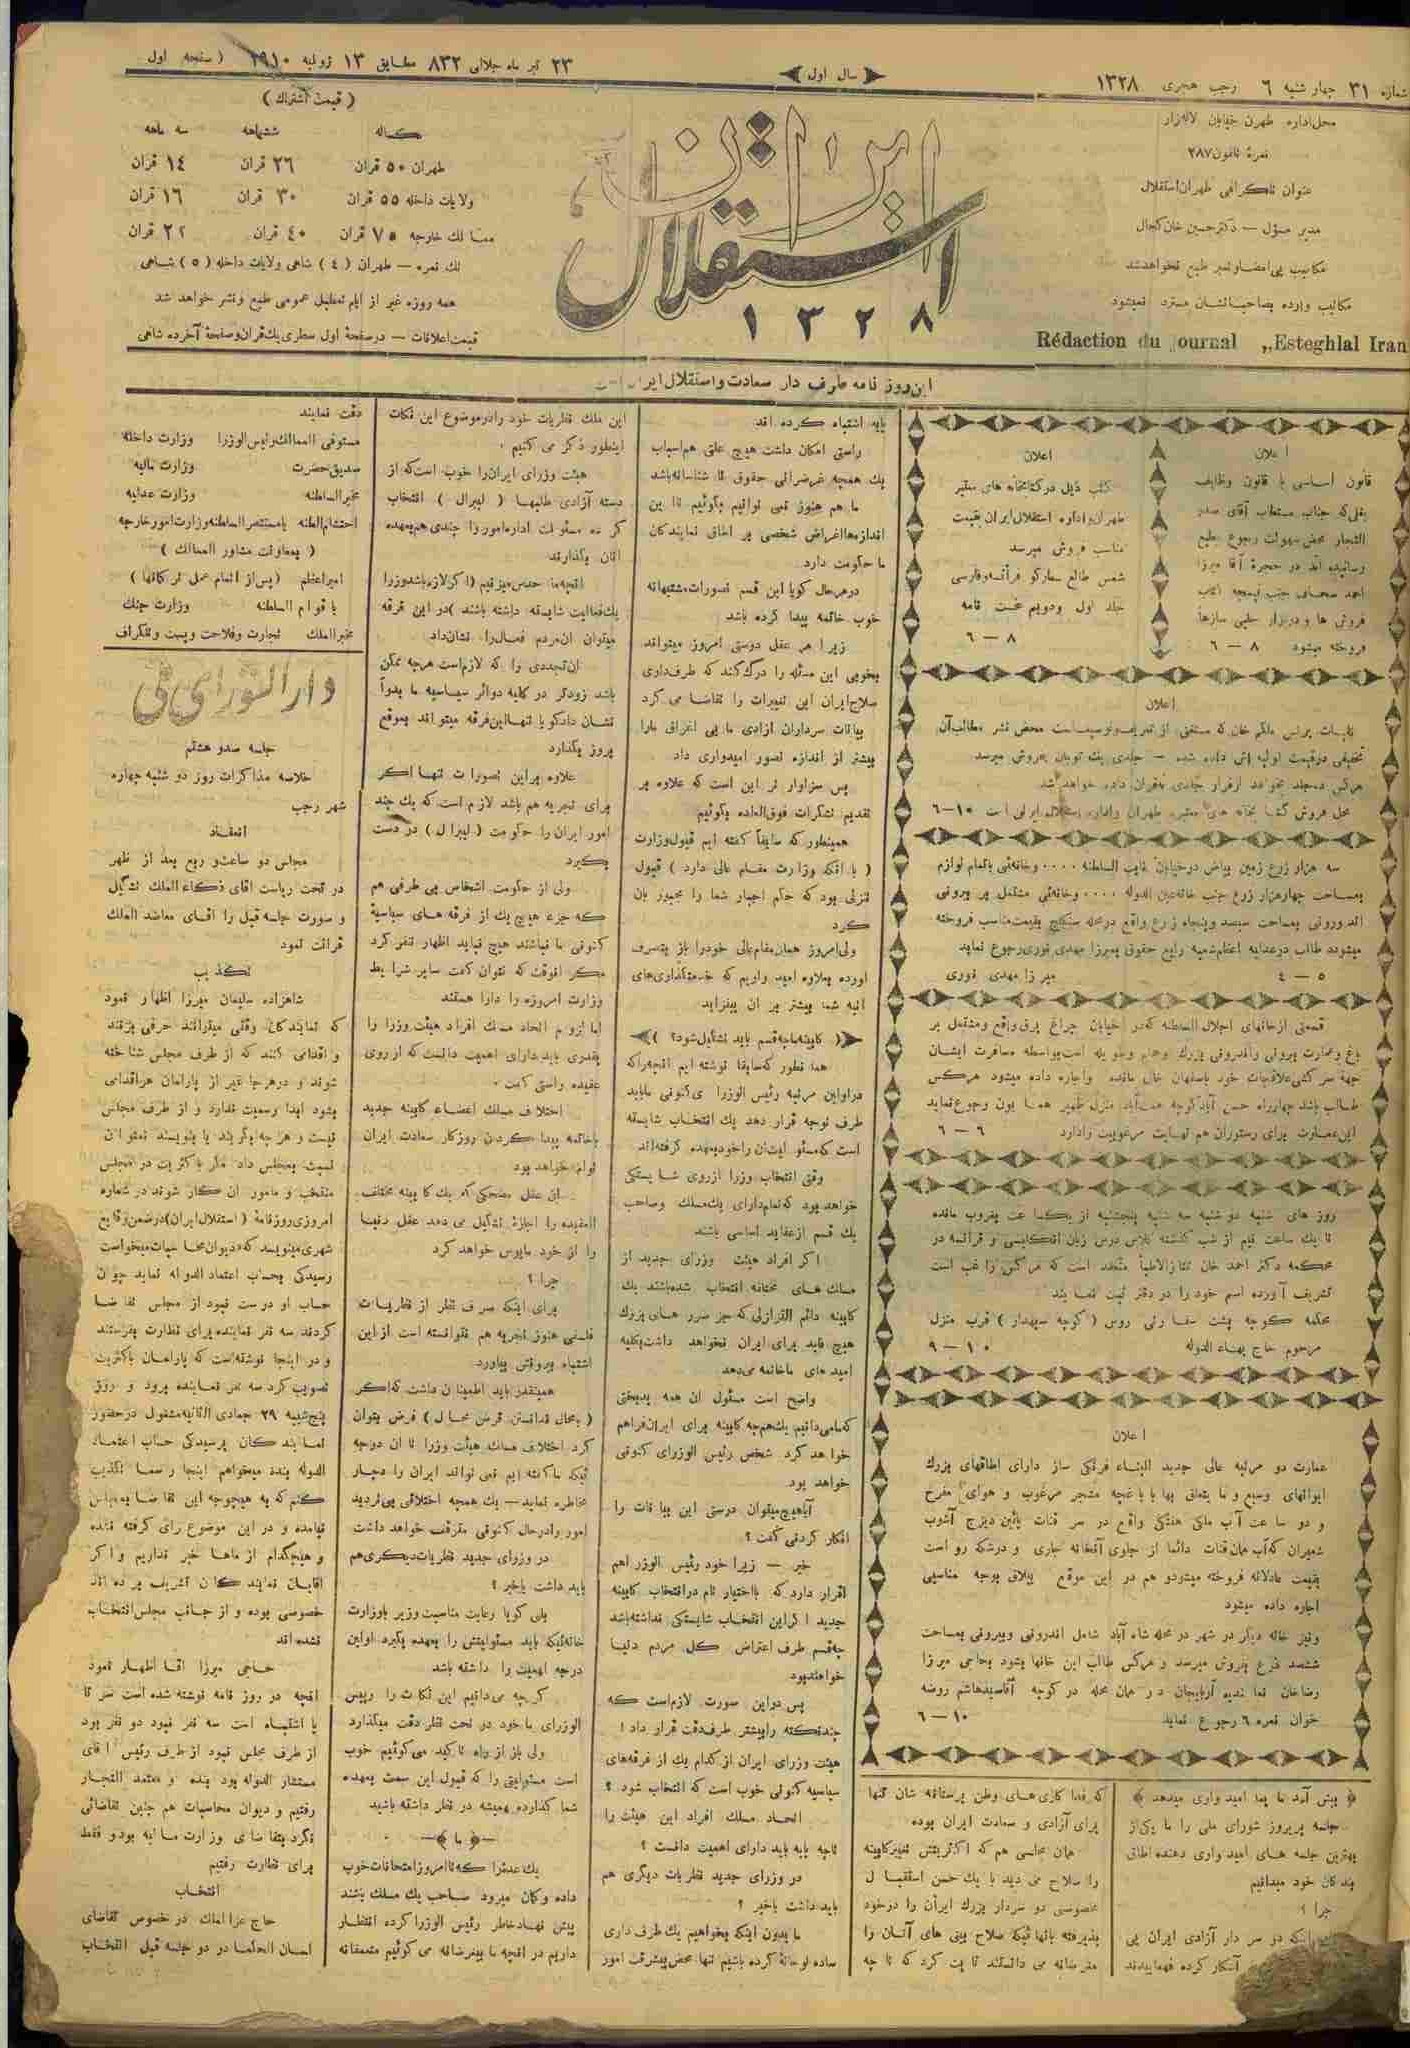 شماره ۳۱ چهار شنبه ۶ رجب هجری ۱۳۲۸
سال اول
۲۳ تیر ماه جلالی ۸۳۲ مطابق ۱۳ ژوئیه ۱۹۱۰ (صفحه اول
محل اداره طهران خیابان لاله‌زار
نمرهٔ تلفون ۲۸۷
عنوان تلگرافی طهران استقلال
مدیر مسؤل — دکتر حسین خان کحال
مکاتیب بی امضاء و تمبر طبع نخواهد شد
مکاتیب وارده بصاحبانشان مسترد نمیشود
Rédaction du Journal „Esteghlal Iran
استقلال ایران
۱۳۲۸
(قیمت اشتراك)
یکساله ششماهه سه ماهه
طهران ۵۰ قران ۲۶ قران ۱۴ قران
ولایات داخله ۵۵ قران ۳۰ قران ۱۶ قران
ممالك خارجه ۷۵ قران ۴۰ قران ۲۲ قران
تك نمره — طهران (۴) شاهی ولایات داخله (۵) شاهی
همه روزه غیر از ایام تعطیل عمومی طبع و نشر خواهد شد
قیمت اعلانات — در صفحهٔ اول سطری یك قران و صفحهٔ آخر ده شاهی
این روز نامه طرف دار سعادت و استقلال ایران است
اعلان
قانون اساسی با قانون وظایف
احمد صحاف جنب تیمچه کتاب
فروش ها و در بازار حلبی سازها
فروخته میشود ۸ — ۶
اعلان
کتب ذیل در کتابخانه های معتبر
طهران و اداره استقلال ایران بقیمت
مناسب فروش میرسد
شمس طالع مغارکو فرانسه و فارسی
جلد اول و دویم غست نامه
۸ — ۶
اعلان
کلیات پرنس ملکم خان که مستغنی از تعریف و توصیف است محض نشر مطالب آن
تخفیفی در قیمت اولیه اش داده شده — جلدی یك تومان بفروش میرسد
هر کس ده جلد بخواهد از قرار جلدی نه قران داده خواهد شد
محل فروش کتابخانه های معتبره طهران و اداره استقلال ایران است ۱۰—۶
سه هزار زرع زمین بیاض در خیابان نایب السلطنه ۰۰۰۰ و خانه‌ئی باتمام لوازم
بمساحت چهار هزار زرع جنب خانه عین الدوله ۰۰۰۰ و خانه‌ئی مشتمل بر بیرونی
اندرونی بمساحت سیصد و پنجاه زرع واقع در محله سنگلج بقیمت مناسب فروخته
میشوند طالب در عدلیه اعظم شعبه رابع حقوق بمیرزا مهدی نوری رجوع نماید
۵ — ۴ میرزا مهدی نوری
قسمتی از خانهای اجلال السلطنه که در خیابان چراغ برق واقع و مشتمل بر
باغ و عمارت بیرونی و اندرونی بزرك و حمام و طویله است بواسطه مسافرت ایشان
جهة سر کشی علاقجات خود باصفهان خالی مانده و اجاره داده میشود هر کس
طالب باشد چهار راه حسن آباد کوچه همت آباد منزل ظهیر همایون رجوع نماید
این عمارت برای رستوران هم نهایت مرغوبیت را دارد ۶ — ۶
روز های شنبه دو شنبه سه شنبه پنجشنبه از یکساعت بغروب مانده
تا یك ساعت نیم از شب گذشته کلاس درس زبان انگلیسی و فرانسه در
محکمه دکتر احمد خان ممتاز الاطباء منعقد است که هر کس راغب است
تشریف آورده اسم خود را در دفتر ثبت نماید
محکمه کوچه پشت سفارتی روس (کوچه سپهدار) قرب منزل
مرحوم حاج بهاء الدوله ۱۰ — ۹
اعلان
عمارت دو مرتبه عالی جدید البناء فرنگی ساز دارای اطاقهای بزرك
ایوانهای وسیع و ما یتعلق بها با باغچه مشجر مرغوب و هوای مفرح
و دو ساعت آب ملکی هفتگی واقع در سر قنات پائین دیزج آشوب
شمیران که آب همان قنات دائما از جلوی آشپزخانه جاری و درشکه رو است
بقیمت عادلانه فروخته میشود و هم در این موقع ییلاق بوجه مناسبی
اجاره داده میشود
و نیز خانه دیگر در شهر در محله شاه آباد شامل اندرونی و بیرونی بمساحت
ششصد ذرع بفروش میرسد و هر کس طالب این خانها بشود بحاجی میرزا
رضا خان نماینده آذربایجان در همان محله در کوچه آقا سید هاشم روضه
خوان نمره ۶ رجوع نماید ۱۰ — ۶
پیش آمد ما بما امید واری میدهد
جلسه پریروز شورای ملی را ما یکی از
بهترین جلسه های امید واری دهنده اطاق
بندگان خود میدانیم
چرا ؟
اینکه دو سر دار آزادی ایران بی
آشکار کرده فهمانیدند
که فدا کاری های وطن پرستانه شان تنها
برای آزادی و سعادت ایران بوده
همان مجلسی هم که اکثریتش تغییر کابینه
را صلاح می دید با یك حسن استقبال
مخصوصی دو سردار بزرك ایران را در خود
پذیرفته بآنها نیکه صلاح بینی های آنان را
مغرضانه می دانستند ثابت کرد که تا چه
پایه اشتباه کرده اند
راستی امکان داشت هیچ علتی هم اسباب
یك همچه غرضرانی حقوق نا شناسانه باشد
ما هم هنوز نمی توانیم بگوئیم تا این
اندازه‌ها اغراض شخصی بر اطاق نمایندگان
ما حکومت دارد
در هر حال گویا این قسم تصورات مشتبهانه
خوب خاتمه پیدا کرده باشد
زیرا هر عقل دوستی امروز میتواند
بخوبی این مسئله را درك کند که طرفداری
صلاح ایران این تغییرات را تقاضا می کرد
بیانات سرداران آزادی ما بی اغراق ما را
بیشتر از اندازه تصور امیدواری داد
پس سزاوار تر این است که علاوه بر
تقدیم تشکرات فوق العاده بگوئیم
همینطور که سابقاً گفته ایم قبول وزارت
(با آنکه وزارت مقام عالی دارد) قبول
تنزلی بود که حکم اجبار شما را مجبور بان
کرد
ولی امروز همان مقام عالی خود را باز بتصرف
اورده بعلاوه امید واریم که خدمتگذاری‌های
اتیه شما بیشتر بر ان بیفزاید
(کابینه ما بچه قسم باید تشکیل شود؟)
هما نطور که سابقا نوشته ایم انچه را که
در اولین مرتبه رئیس الوزرای کنونی ما باید
طرف توجه قرار دهد یك انتخاب شایسته
است که مسئولیت‌ان را خود بعهده گرفته‌اند
وقتی انتخاب وزرا از روی شایستگی
خواهد بود که تمام دارای یك مسلك و صاحب
یك قسم از عقاید اساسی باشند
اگر افراد هیئت وزرای جدید از
مسلك های مختلفه انتخاب شده باشند یك
کابینه دائم التزلزلی که جز ضرر های بزرك
هیچ فایده برای ایران نخواهد داشت بکلیه
امید های ما خاتمه می‌دهد
واضح است مسئول ان همه بدبختی
که ما می‌دانیم یك همچه کابینه برای ایران فراهم
خواهد کرد شخص رئیس الوزرای کنونی
خواهد بود
آیا هیچ میتوان درستی این بیانات را
انکار کرد نمی گفت ؟
خیر — زیرا خود رئیس الوزرا هم
اقرار دارد که با اختیار تام در انتخاب کابینه
جدید اگر این انتخاب شایستگی نداشته باشد
چه قسم طرف اعتراض کل مردم دنیا
خواهند بود
پس در این صورت لازم است که
چند نکته را بیشتر طرف دقت قرار داد !
هیئت وزرای ایران از کدام یك از فرقه‌های
سیاسیه کنونی خوب است که انتخاب شود ؟
اتحاد مسلك افراد این هیئت را
تا چه پایه باید دارای اهمیت دانست ؟
در وزرای جدید نظریات دیگری هم
باید داشت یا خیر ؟
ما بدون اینکه بخواهیم یك طرف داری
ساده لوحانهٔ کرده باشیم تنها محض پیشرفت امور
این ملك نظریات خود را در موضوع این نکات
اینطور ذکر می کنیم .
هیئت وزرای ایران را خوب است که از
دسته آزادی طلبها (لیبرال) انتخاب
کرده مسئولیت اداره امور را چندی هم بعهده
آنان بگذارند
انچه ما حدس میزنیم (اگر لازم باشد وزرا
یك فعالیت شایسته داشته باشند) در این فرقه
میتوان ان مردم فعال را نشان داد
ان تجددی را که لازم است هر چه ممکن
باشد زودتر در کلیه دوائر سیاسیه ما بدوآ
نشان داد گویا تنها این فرقه میتواند بموقع
بروز بگذارد
علاوه بر این تصورات تنها اگر
برای تجربه هم باشد لازم است که یك چند
امور ایران را حکومت (لیبرال) در دست
بگیرد
ولی از حکومت اشخاص بی طرفی هم
که جزء هیچ یك از فرقه های سیاسیهٔ
کنونی ما نباشند هیچ نباید اظهار تنفر کرد
مگر انوقت که نتوان گفت سایر شرایط
وزارت امروزه را دارا هستند
اما لزوم اتحاد مسلك افراد هیئت وزرا را
بقدری باید دارای اهمیت دانست که از روی
عقیده راستی گفت .
اختلاف مسلك اعضاء کابینه جدید
با خاتمه پیدا کردن روزگار سعادت ایران
توام خواهد بود
ان عقل مضحکی که یك کابینه مختلف
العقیده را اجازهٔ تشکیل می دهد عقل دنیا
را از خود مایوس خواهد کرد
چرا ؟
برای اینکه صرف نظر از نظریات
فلسفی هنوز تجربه هم نتوانسته است از این
اشتباه بیرونش بیاورد
همینقدر باید اطمینان داشت که اگر
(بمحال ندانستن فرض محال) فرض بتوان
کرد اختلاف مسلك هیئت وزرا تا ان درجه
ئیکه ما گفته ایم نمی تواند ایران را دچار
مخاطره نماید — یك همچه اختلافی بی تردید
امور را در حال کنونی متوقف خواهد داشت
در وزرای جدید نظریات دیگری هم
باید داشت یا خیر ؟
بلی گویا رعایت مناسبت وزیر با وزارت
خانه‌ئیکه باید مسئولیتش را بعهده بگیرد اولین
درجه اهمیت را داشته باشد
گرچه می‌دانیم این نکات را رئیس
الوزرای ما خود در تحت نظر دقت میگذارد
ولی باز از راه تاکید می گوئیم خوب
است مسئولیتی را که قبول این سمت بعهده
شما گذارده همیشه در نظر داشته باشید
(ما)
یك عده‌را که تا امروز امتحانات خوب
داده و گمان میرود صاحب یك مسلك باشند
پیش نهاد خاطر رئیس الوزرا کرده انتظار
داریم در انچه ما بیغرضانه می گوئیم متعمقانه
دقت نمایند
مستوفی الممالك رئیس الوزرا وزارت داخله
صدیق حضرت وزارت مالیه
مخبر السلطنه وزارت عدلیه
احتشام السلطنه یا مستنصر السلطنه وزارت امور خارجه
(بمعاونت مشاور الممالك)
امیر اعظم (پس از اتمام عمل ترکمانها)
یا قوام السلطنه وزارت جنك
مخبر الملك تجارت و فلاحت و پست و تلگراف
دار الشورای ملی
جلسه صد و هشتم
خلاصه مذاکرات روز دو شنبه چهارم
شهر رجب
انعقاد
مجلس دو ساعت و ربع بعد از ظهر
در تحت ریاست اقای ذکاء الملك تشکیل
و صورت جلسه قبل را اقای معاضد الملك
قرائت نمود
تکذیب
شاهزاده سلیمان میرزا اظهار نمود
که نمایندگان وقتی میتوانند حرفی بزنند
و اقدامی کنند که از طرف مجلس شناخته
شوند و در هر جا غیر از پارلمان هر اقدامی
بشود ابدا رسمیت ندارد و از طرف مجلس
نیست و هر چه بگویند یا بنویسند نمیتوان
نسبت بمجلس داد مگر باکثریت در مجلس
منتخب و مامور ان کار شوند در شماره
امروزی روزنامهٔ (استقلال ایران) در ضمن وقایع
شهری مینویسد که «دیوان محاسبات میخواست
رسیدگی بحساب اعتماد الدوله نماید چون
حساب او درست نبود از مجلس تقاضا
کردند سه نفر نماینده برای نظارت بفرستند
و در اینجا نوشته است که پارلمان باکثریت
تصویب کرد سه نفر نماینده برود و روز
پنجشنبه ۲۹ جمادی الثانیه مشغول در حضور
نمایندگان برسیدگی حساب اعتماد
الدوله بنده میخواهم اینجا رسما تکذیب
کنم که به هیچوجه این تقاضا بمجلس
نیامده و در این موضوع رای گرفته نشده
و هیچکدام از ماها خبر نداریم و اگر
اقایان نمایندگان تشریف برده اند
خصوصی بوده و از جانب مجلس انتخاب
نشده اند
حاجی میرزا اقا اظهار نمود
انچه در روز نامه نوشته شده است سر تا
پا اشتباه است سه نفر نبود دو نفر بود
از طرف مجلس نبود از طرف رئیس اقای
مستشار الدوله بود بنده و معتمد التجار
رفتیم و دیوان محاسبات هم چنین تقاضائی
نکرد بتقاضای وزارت مالیه بود و فقط
برای نظارت رفتیم
انتخاب
حاج عز الملك در خصوص تقاضای
لسان الحکما در دو جلسه قبل انتخاب